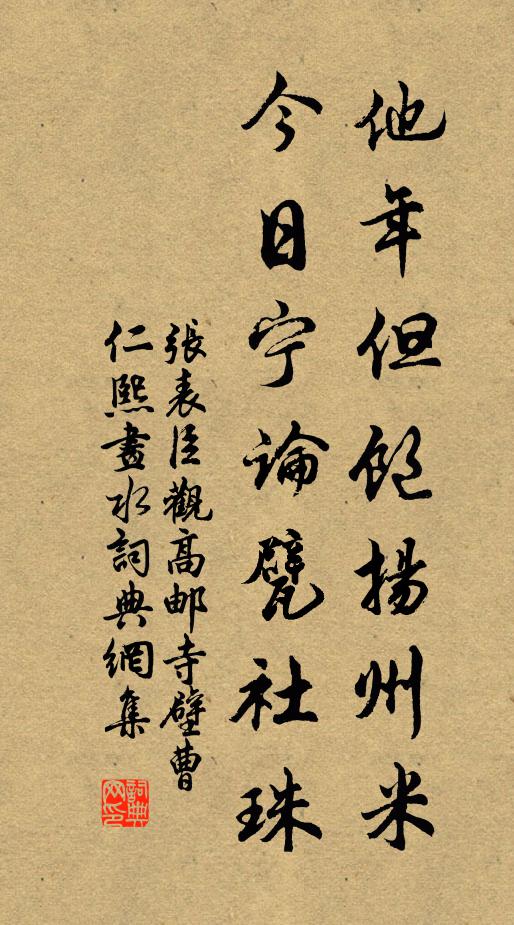 他年但飽揚州米
今日宁論甓社珠
張表臣觀高邮寺壁曹
仁熙畫水詞典網集
詞典网印